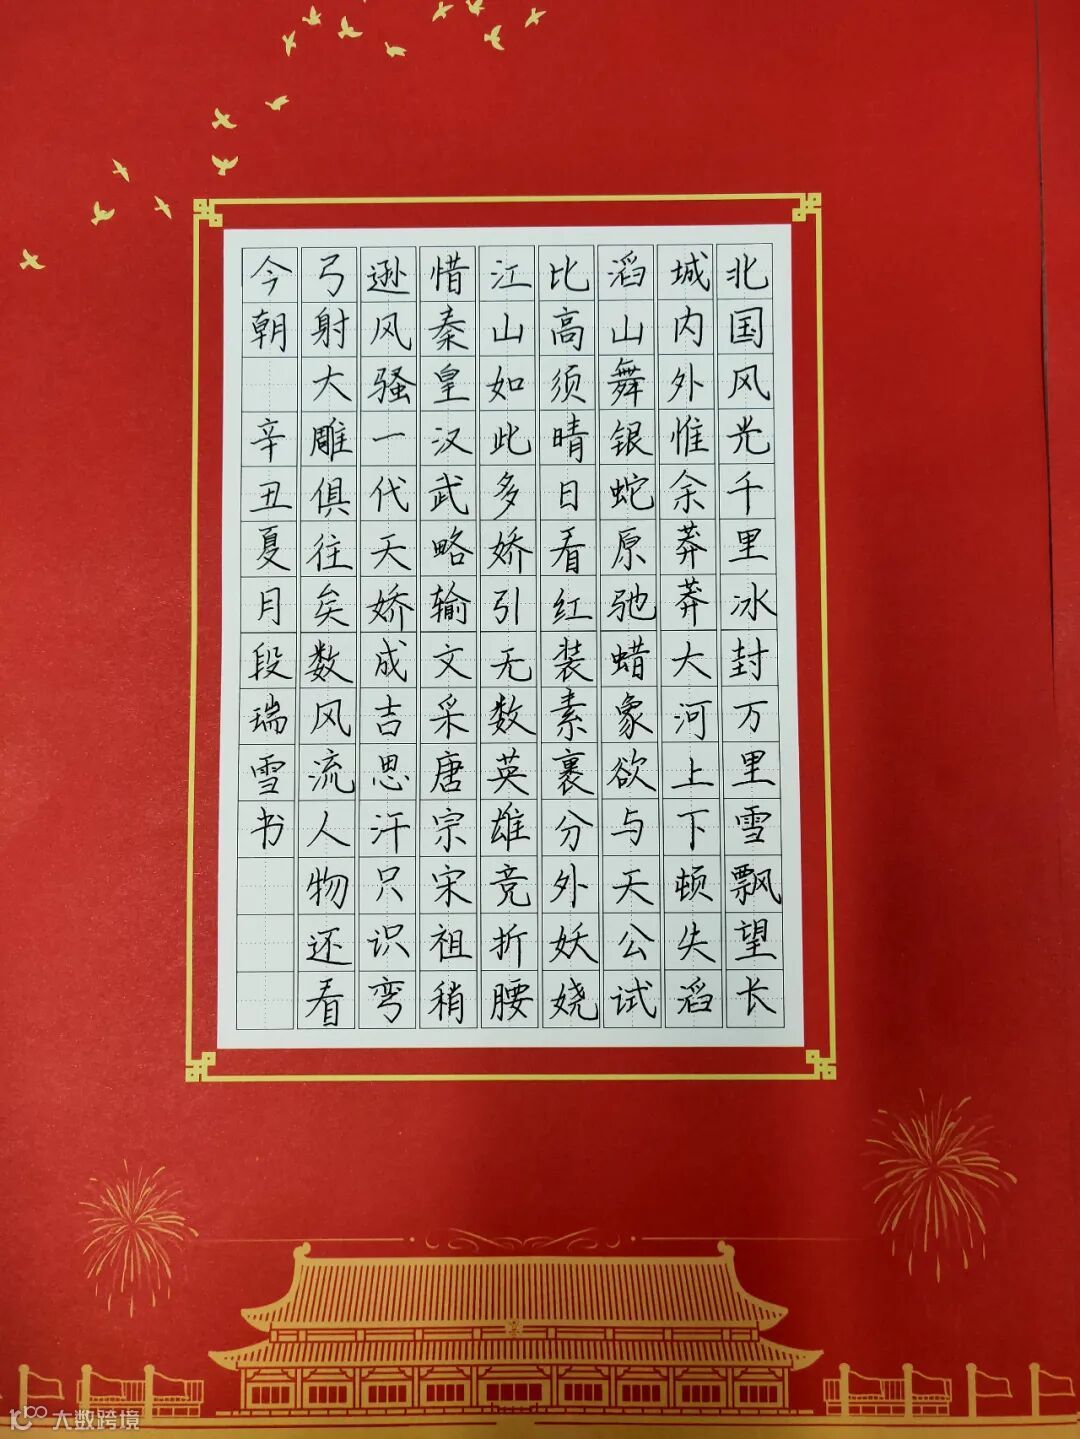 北国风光千里冰封万里雪飘望长
城内外惟余莽莽大河上下顿失滔
滔山舞银蛇原驰蜡象欲与天公试
比高须晴日看红装素裹分外妖娆
江山如此多娇引无数英雄竞折腰
惜秦皇汉武略输文采唐宗宋祖稍
逊风骚一代天娇成吉思汗只识弯
弓射大雕俱往矣数风流人物还看
今朝 辛丑夏月段瑞雪书
大数跨境